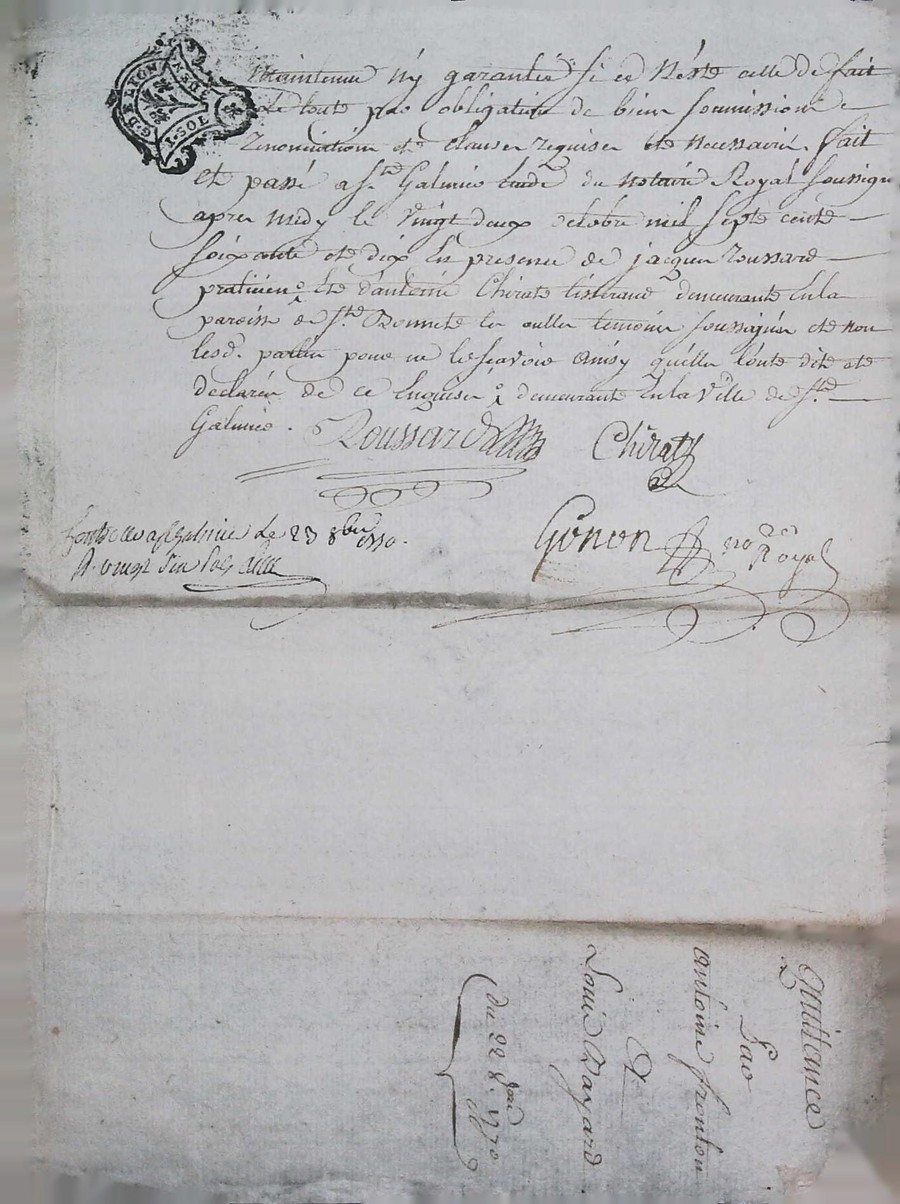 G. D. E LYON
1. SOL
maintenue n'y garantir si ce n'este celle de fait
Le toute par obligation de bien soumission
Renonciation ete clauser requiser ete neussairer. fait
ete passé a St. Galmier etude du notaire Royal soussigné
apres midy le vingt deux octobre mil septe cente
soixante ete dix En presence de jacques Roussard
praticien ete d'antoine Chirate tisserand demeurante En la
paroisse de St. Bonnete les oulles temoins soussignés ete non
lesd. parties pour ne le scavoir ainsy quelles l'onte dite ete
declarée de ce Enquiser demeurante En la ville de St.
Galmier.
Roussard
Chirat
Controlle a St Galmier Le 23 8bre 1770.
R. vingt
Gonon
no re
Royal
Quittance
Par
antoine
&
Louis Bayard
du 22 8bre 1770